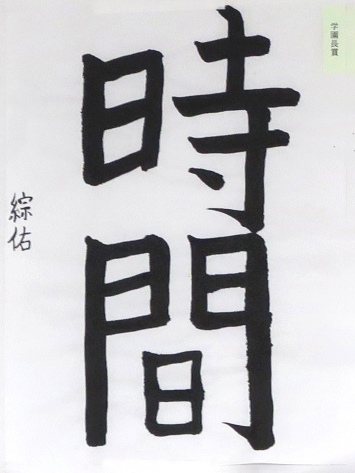 学園長賞
時間
綜佑